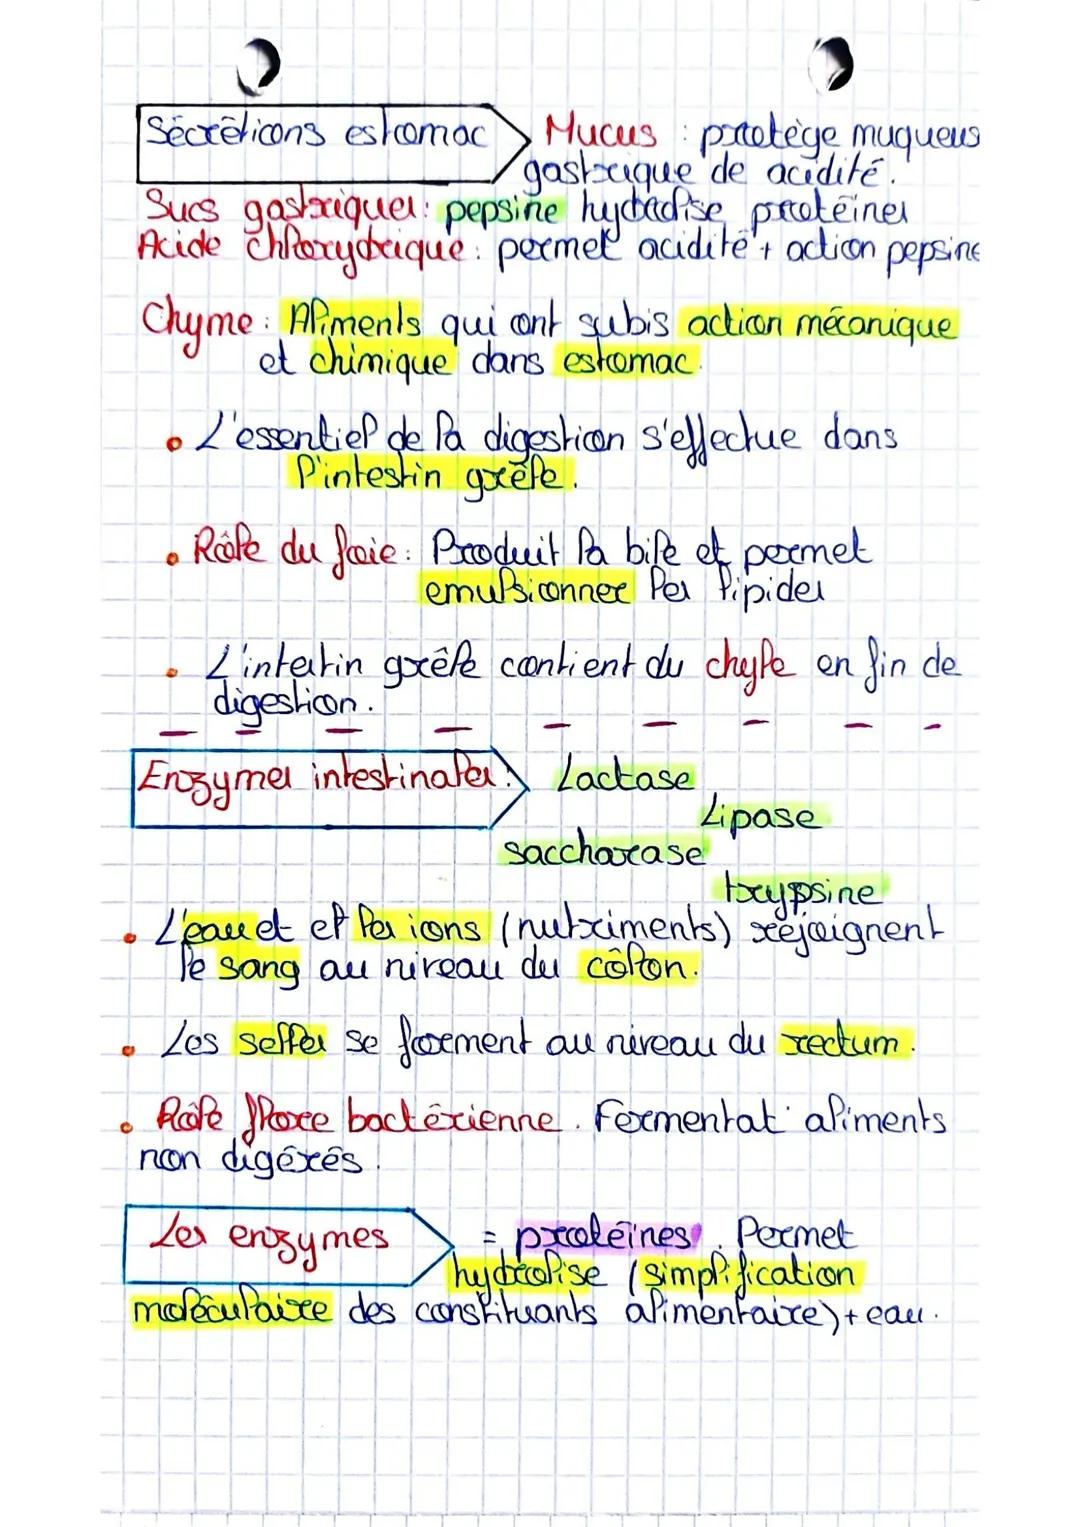 Sécrétions estomac
Mucus : protège muqueus
gastrique de acidité.
Sucs gastriques : pepsine hydrolise protéines
Acide chlorydrique : permet acidité + action pepsine
Chyme : Aliments qui ont subis action mécanique
et chimique dans estomac.
• L'essentiel de la digestion s'effectue dans
l'intestin grêle.
• Rôle du foie : Produit la bile et permet
emulsionner les lipides
• L'intestin grêle contient du chyle en fin de
digestion.
Enzymes intestinales :
Lactase
Lipase
saccharase
trypsine
• L'eau et et les ions (nutriments) rejoignent
le sang au niveau du côlon.
• Les selles se forment au niveau du rectum.
• Rôle flore bactérienne. Fermentat° aliments
non digérés.
Les enzymes
= protéines. Permet
hydrolise (simplification
moléculaire des constituants alimentaire) + eau.